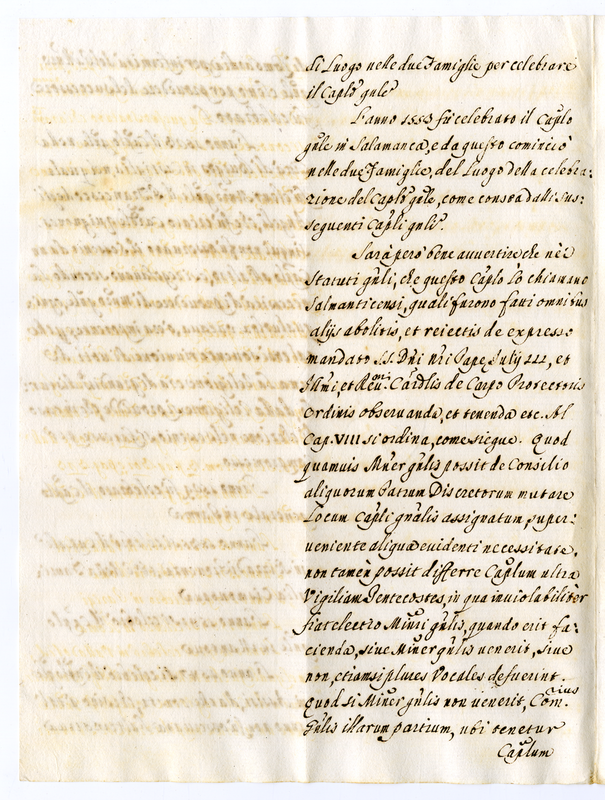 di Luogo nelle due Famiglie per celebrare
il Caplõ gnle
L'anno 1553 fu celebrato il Caplo
gnle in Salamanca, e da questo cominciò
nelle due Famiglie, del Luogo della celebra:
zione del Caplo gnle, come consta dalli sus:
seguenti Capli gnli.
Sarà però bene avvertire che nei
Statuti gnli, che questo Caplo lo chiamano
Salmanticensi, quali furono facti omnibus
alijs abolitis, et reiectis de expresso
mandato SS. Dñi nri Pape Julij III, et
Illmi, et Reumi Cardlis de Carpo Protectoris
Ordinis observanda, et tenenda etc. Al
Cap. VIII si ordina, come siegue. Quod
quamuis Miner gnlis possit de Consilio
aliquorum Patrum Discretorum mutare
Locum Capli gnalis assignatum, super:
ueniente aliqua euidenti necessitate,
non tamen possit differre Caplum ultra
Vigiliam Pentecostes, in qua inuiolabiliter
fiat electio Minri gnlis, quando erit fa:
cienda, siue Miner gnlis uenerit, siue
non, etiamsi plures Vocales defuerint.
Quod si Miner gnlis non uenerit, Com.rius
Gnlis illarum partium, ubi tenetur
Caplum